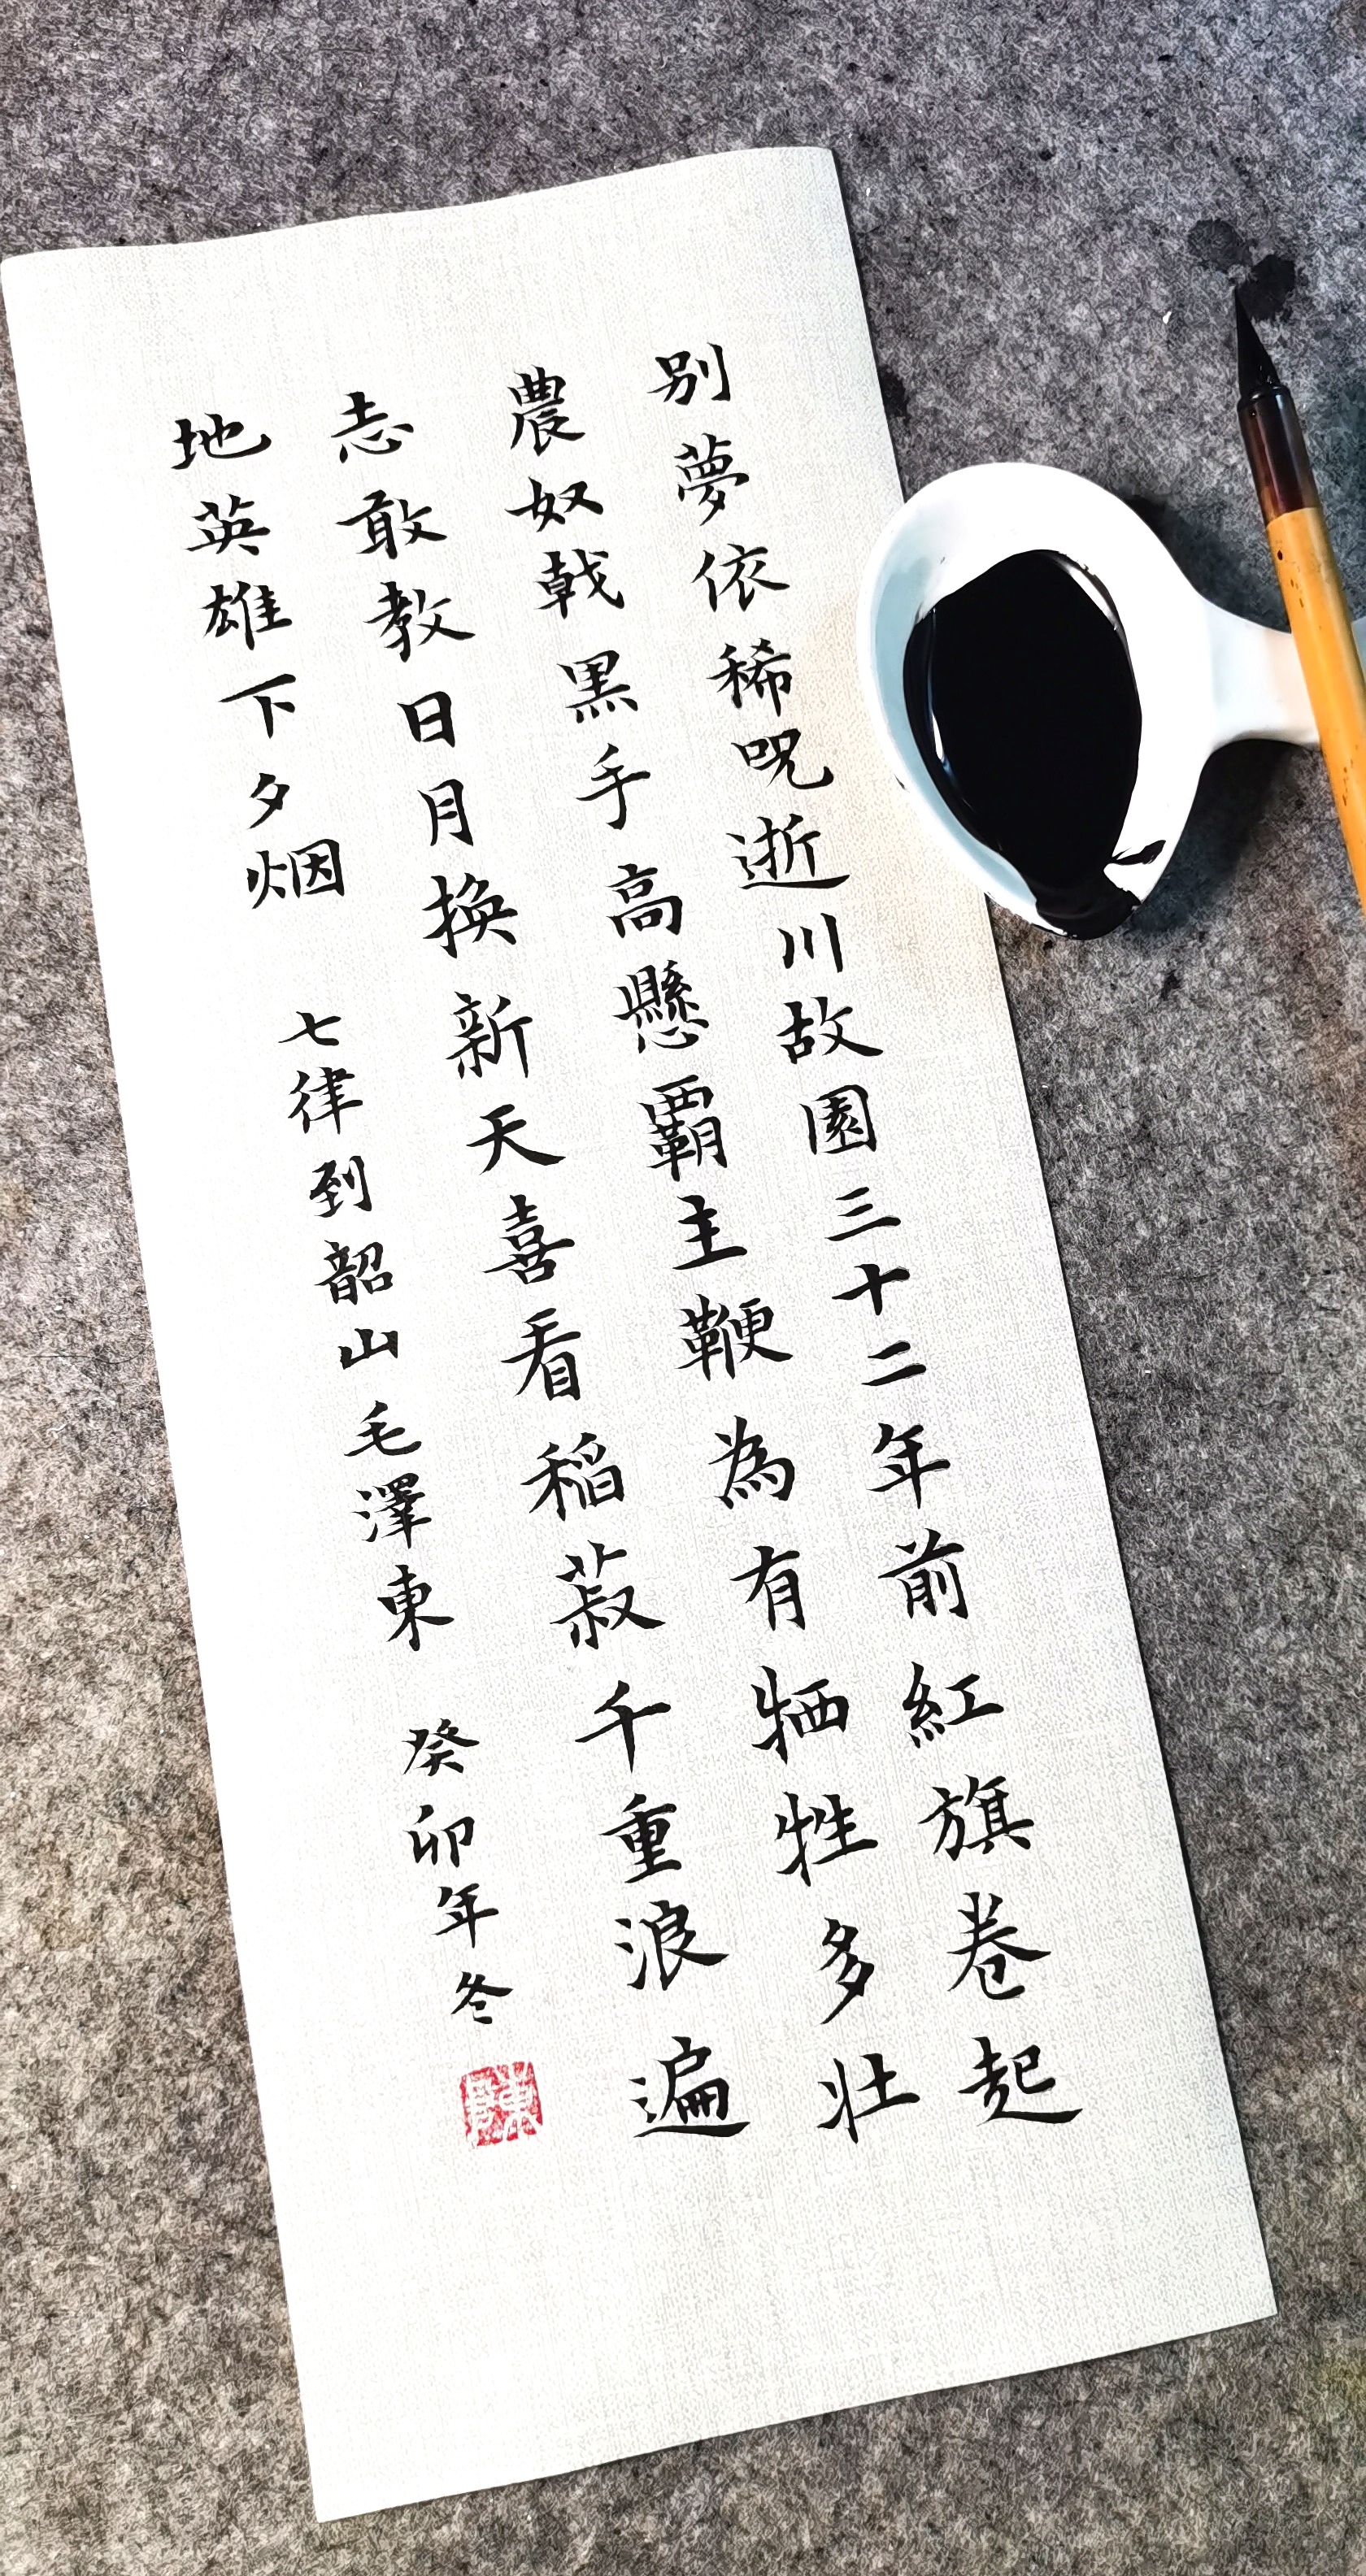 别夢依稀呪逝川故園三十二年前紅旗卷起
農奴戟黑手高懸霸主鞭為有牺牲多壯
志敢教日月换新天喜看稻菽千重浪遍
地英雄下夕烟 七律到韶山毛澤東 癸卯年冬